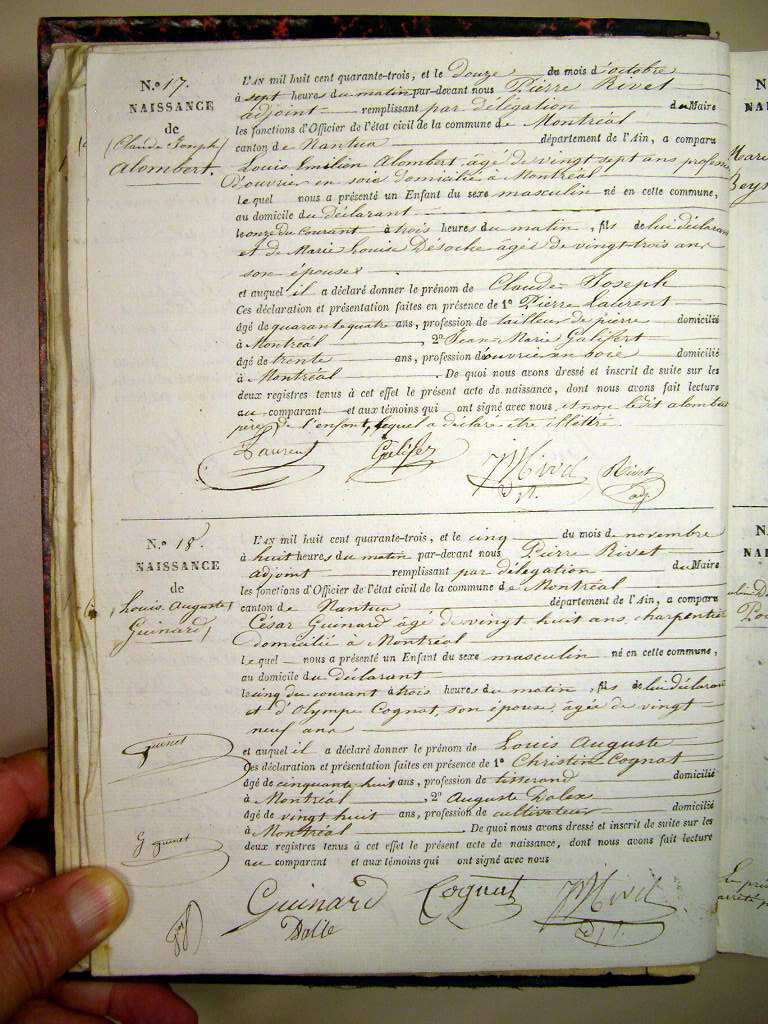 N.o 17.
NAISSANCE
de
Claude Joseph
Alombert.
L'AN mil huit cent quarante-trois, et le Douze du mois d'octobre
à sept heures du matin par-devant nous Pierre Rivet
adjoint remplissant par délégation du Maire
les fonctions d'Officier de l'état civil de la commune de Montréal
canton de Nantua département de l'Ain, a comparu
Louis Emilien Alombert, âgé de vingt sept ans, profession
D'ouvrier en soie domicilié à Montréal
lequel nous a présenté un Enfant du sexe masculin né en cette commune,
au domicile du déclarant
le onze du courant à trois heures du matin, fils de lui déclarant
et de Marie Louise Désoche âgée de vingt-trois ans
son épouse
et auquel il a déclaré donner le prénom de Claude Joseph
Ces déclaration et présentation faites en présence de 1o Pierre Laurent
âgé de quarante quatre ans, profession de tailleur de pierre domicilié
à Montréal, 2o Jean Marie Galifert
âgé de trente ans, profession d'ouvrier en soie domicilié
à Montréal. De quoi nous avons dressé et inscrit de suite sur les
deux registres tenus à cet effet le présent acte de naissance, dont nous avons fait lecture
au comparant et aux témoins qui ont signé avec nous, et non ledit alombert
père de l'enfant, lequel a déclaré être illettré.
Laurent Galifer Rivet
adj
N.o 18.
NAISSANCE
de
Louis Auguste
Guinard
L'AN mil huit cent quarante-trois, et le cinq du mois de novembre
à huit heures du matin par-devant nous Pierre Rivet
adjoint remplissant par délégation du Maire
les fonctions d'Officier de l'état civil de la commune de Montréal
canton de Nantua département de l'Ain, a comparu
César Guinard âgé de vingt huit ans, charpentier
Domicilié à Montréal
lequel nous a présenté un Enfant du sexe masculin né en cette commune,
au domicile du déclarant
le cinq du courant à trois heures du matin, fils de lui déclarant
et d'Olympe Cognat, son épouse, âgée de vingt-
neuf ans
et auquel il a déclaré donner le prénom de Louis Auguste
Ces déclaration et présentation faites en présence de 1o Christin Cognat
âgé de cinquante huit ans, profession de tisserand domicilié
à Montréal, 2o Auguste Dolex
âgé de vingt huit ans, profession de cultivateur domicilié
à Montréal. De quoi nous avons dressé et inscrit de suite sur les
deux registres tenus à cet effet le présent acte de naissance, dont nous avons fait lecture
au comparant et aux témoins qui ont signé avec nous
Guinard Cognat